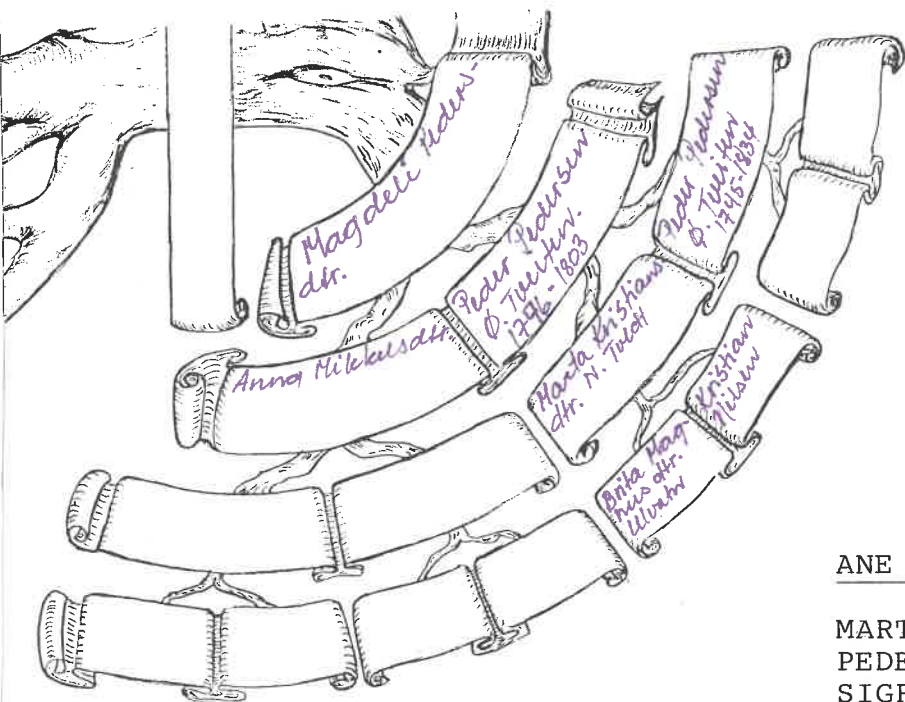 Magdeli Peders-
dtr.
Peder Pedersen
Ø. Tveiten.
1796-1803
Anna Mikkelsdtr.
Peder Pedersen
Ø. Tveiten
1745-1834
Marta Kristians
dtr. N. Tvedt
Kristian
Nilsen
Brita Mag-
nus dtr.
Ulvatn
ANE
MART
PEDE
SIGR